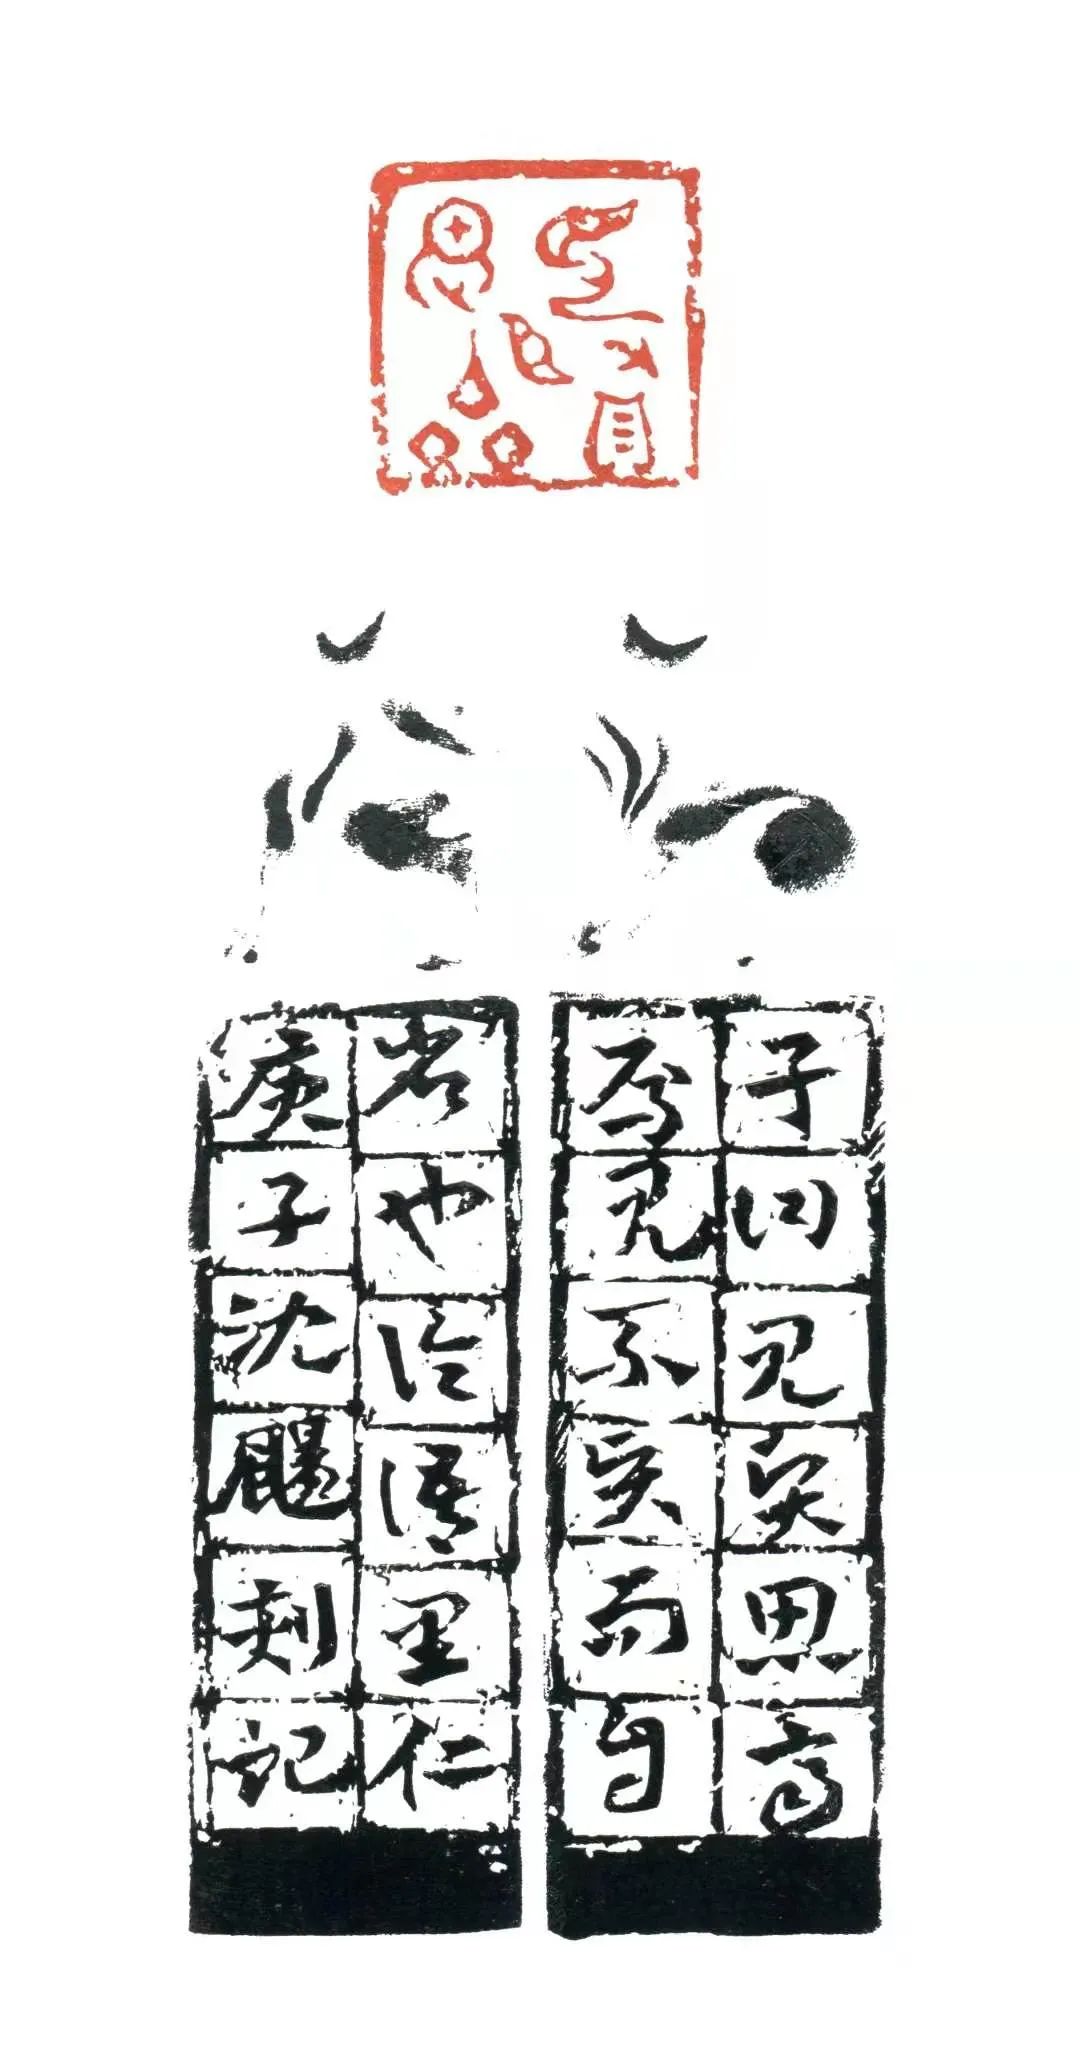 見賢思齊
子曰見賢思齊
焉見不賢而自
省也論語里仁
庚子沈刻記